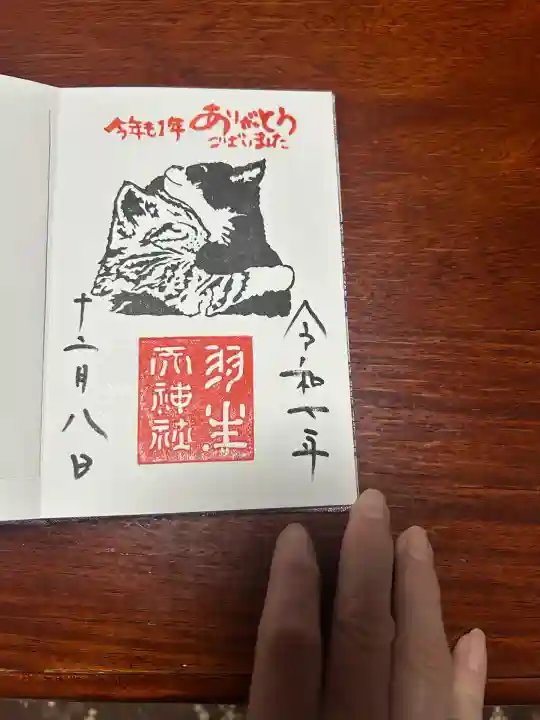 今年も1年 ありがとう
ございました
令和七年
羽生
天神社
十二月八日